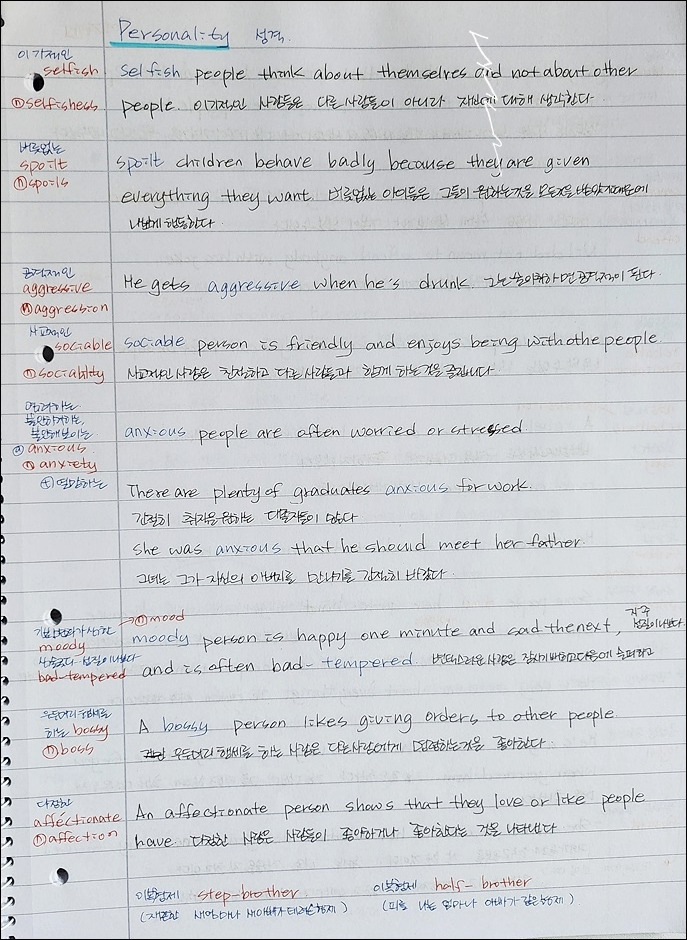 Personality 성격.
이기적인
selfish
ⓝ selfishess
selfish people think about themselves and not about other
people. 이기적인 사람들은 다른사람들이 아니라 자신에 대해 생각한다.
버릇없는
spoilt
ⓝ spoils
spoilt children behave badly because they are given
everything they want. 버릇없는 아이들은 그들이 원하는것을 모든것을 받았기때문에
나쁘게 행동한다.
공격적인
aggressive
ⓝ aggression
He gets aggressive when he's drunk. 그는 술이취하면 공격적이 된다.
사교적인
sociable
ⓝ sociability
sociable person is friendly and enjoys being with othe people.
사교적인 사람은 친절하고 다른 사람들과 함께 하는것을 즐깁니다.
염려하는
불안해하는,
불안해보이는
ⓐ anxious.
ⓝ anxiety
anxious people are often worried or stressed
열망하는
There are plenty of graduates anxious for work.
간절히 취직을 원하는 대졸자들이 많다
she was anxious that he should meet her father.
그녀는 그가 자신의 아버지를 만나기를 간절히 바랐다.
ⓝ mood
moody
bad-tempered
moody person is happy one minute and sad the next, 자주
and is often bad-tempered. 변덕스러운 사람은 잠시 행복하고 다음에 슬퍼하고
우두머리 행세를
하는 bossy
ⓝ boss
A bossy person likes giving orders to other people.
우두머리 행세를 하는 사람은 다른사람에게 명령하는것을 좋아한다.
다정한
affectionate
ⓝ affection
An affectionate person shows that they love or like people
have 다정한 사람은 사람들이 좋아하거나 좋아한다는 것을 나타낸다
이복형제 step-brother 이복형제 half-brother
(재혼한 새엄마나 새아빠가 데려온형제) (피를 나눈 엄마나 아빠가 같은형제)